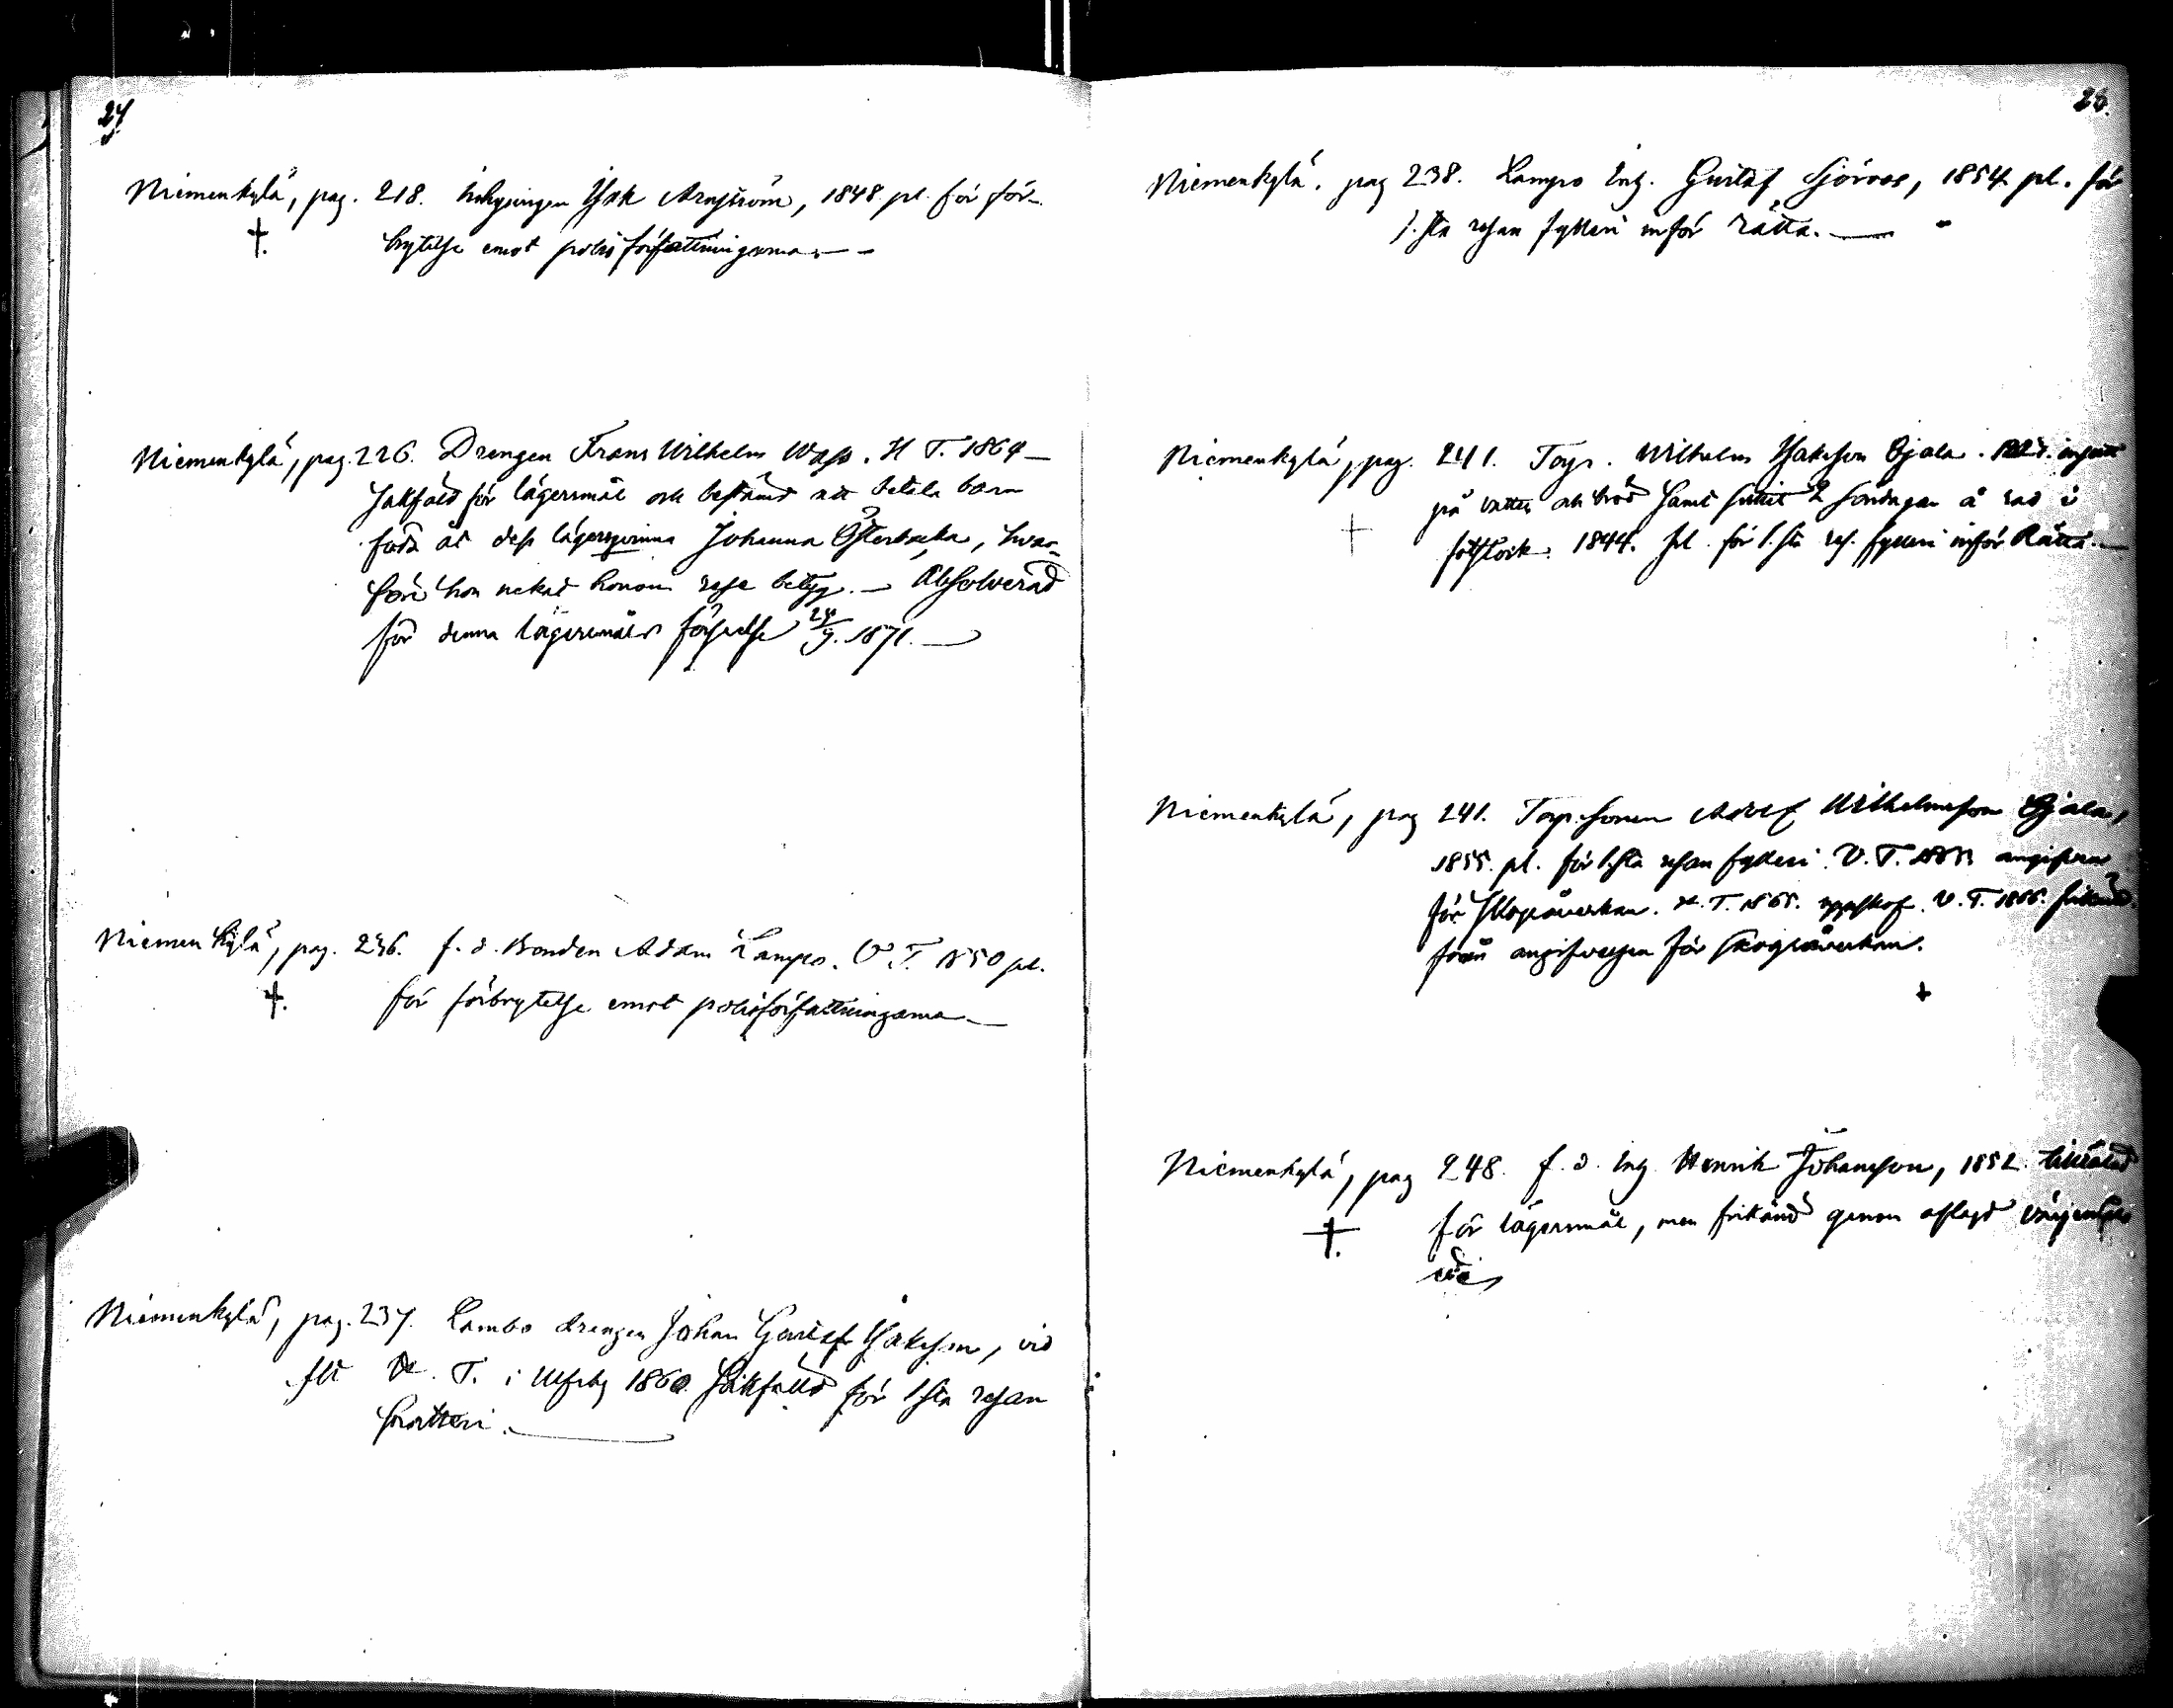 24
Niemenkylä, pag. 218. Inhysingen Isak Arnström, 1848 pl. för för-
brytelse emot polisförfattningarna.
Niemenkylä, pag. 226. Drengen Frans Wilhelm Wass. H T. 1864
sakfäld för lägersmål och bestämd att betala barn
föda åt dess lägersqvinna Johanna Österbacka, hvar-
före hon nekat honom rese betyg. Absolverad
för denna lägersmåls förseelse 24/9. 1871.
Niemenkylä, pag. 236. f. d. Bonden Adam Lampo. V T. 1850 pl.
för förbrytelse emot polisförfattningarna
Niemenkylä, pag. 237. Lambo drengen Johan Gustaf Isaksson, vid
T. i Ulfsby 1860 sakfälld för 1sta resan
snatteri.
Niemenkylä, pag 238. Lampo Inh. Gustaf Sjöroos, 1854 pl. för
1.sta resan fylleri inför rätta.
Niemenkylä, pag. 241. Torp. Wilhelm Isaksson Ojala.
på vatten och bröd samt suttit 2 söndagar å rad i
fotstock. 1844. pl. för 1.sta res. fylleri inför Rätta.
Niemenkylä, pag 241. Torp.sonen Adolf Wilhelmsson Ojala,
1855. pl. för 1.sta resan fylleri. V. T. angifven
för skogsåverkan. H. T. 1865. uppskof. V. T. 1866. frikänd
från angifvelsen för skogsåverkan.
Niemenkylä, pag 248. f. d. Inh. Henrik Johansson, 1852. tilltalad
för lägersmål, men frikänd genom aflagd värjemåls
ed.